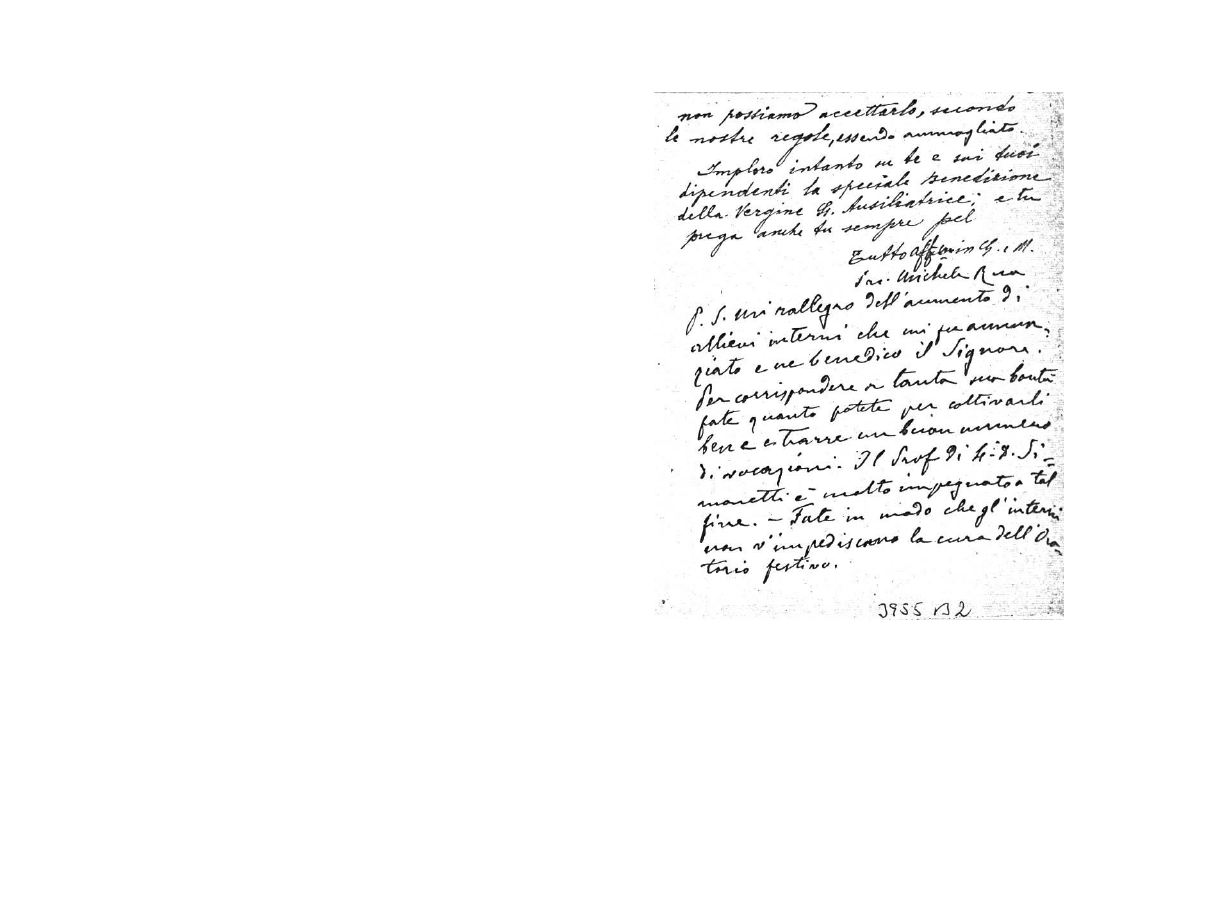 non possiamo accettarlo, secondo
le nostre regole, essendo ammogliato.
Imploro intanto su te e sui tuoi
dipendenti la speciale Benedizione
della Vergine M. Ausiliatrice; e tu
prega anche tu sempre pel
Tutto aff.mo in G. e M.
Sac. Michele Rua
P. S. Mi rallegro dell'aumento di
allievi interni che mi fu annun-
ziato e ne benedico il Signore.
Per corrispondere a tanta sua bontà
fate quanto potete per coltivarli
bene e trarre un buon numero
di vocazioni. Il Prof di D. Si=
monetti è molto impegnato a tal
fine. – Fate in modo che gl'interni
non v'impediscano la cura dell'Ora=
torio festivo.
3955 B 2